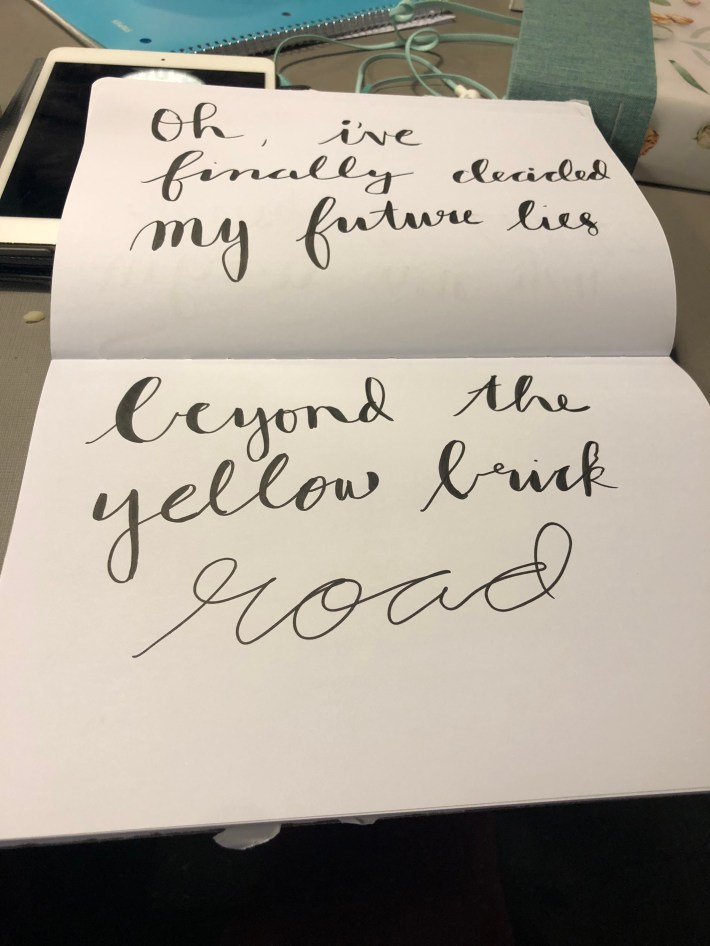 Oh, i've
finally decided
my future lies
beyond the
yellow brick
road